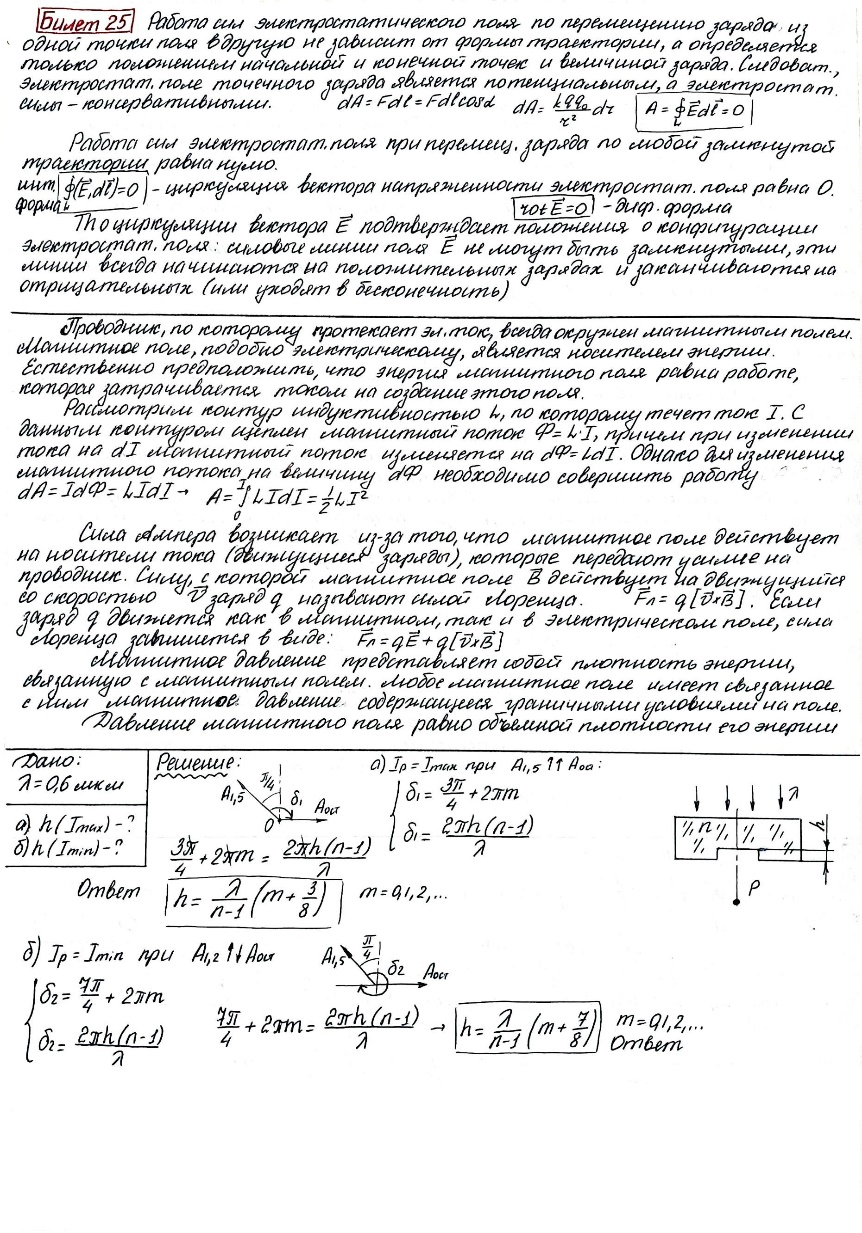 Билет 25 Работа сил электростатического поля по перемещению заряда из
одной точки поля в другую не зависит от формы траектории, а определяется
только положением начальной и конечной точек и величиной заряда. Следоват.,
электростат. поле точечного заряда является потенциальным, а электростат.
силы – консервативными. dA = Fdl = Fdlcosα dA = kqq₀/r² dr A = ∮_L E⃗dl⃗ = 0
Работа сил электростат. поля при перемещ. заряда по любой замкнутой
траектории равна нулю.
инт. форма ∮_L(E⃗,dl⃗)=0 – циркуляция вектора напряженности электростат. поля равна 0.
rot E⃗ = 0 – диф. форма
Th о циркуляции вектора E⃗ подтверждает положения о конфигурации
электростат. поля: силовые линии поля E⃗ не могут быть замкнутыми, эти
линии всегда начинаются на положительных зарядах и заканчиваются на
отрицательных (или уходят в бесконечность)
Проводник, по которому протекает эл. ток, всегда окружен магнитным полем.
Магнитное поле, подобно электрическому, является носителем энергии.
Естественно предположить, что энергия магнитного поля равна работе,
которая затрачивается током на создание этого поля.
Рассмотрим контур индуктивностью L, по которому течет ток I. С
данным контуром сцеплен магнитный поток Ф = L·I, причем при изменении
тока на dI магнитный поток изменяется на dФ = LdI. Однако для изменения
магнитного потока на величину dФ необходимо совершить работу
dA = IdФ = LIdI → A = ∫₀ᴵ LIdI = 1/2 LI²
Сила Ампера возникает из-за того, что магнитное поле действует
на носители тока (движущиеся заряды), которые передают усилие на
проводник. Силу, с которой магнитное поле B⃗ действует на движущийся
со скоростью v⃗ заряд q называют силой Лоренца. F⃗л = q[v⃗×B⃗]. Если
заряд q движется как в магнитном, так и в электрическом поле, сила
Лоренца запишется в виде: F⃗л = qE⃗ + q[v⃗×B⃗]
Магнитное давление представляет собой плотность энергии,
связанную с магнитным полем. Любое магнитное поле имеет связанное
с ним магнитное давление содержащееся граничными условиями на поле.
Давление магнитного поля равно объемной плотности его энергии
Дано:
λ = 0,6 мкм
а) h (Imax) – ?
б) h (Imin) – ?
Решение:
A1,5 π/4 δ₁ Aост O
а) Ip = Imax при A1,5 ↑↑ Aоа :
δ₁ = 3π/4 + 2πm
δ₁ = 2πh(n-1)/λ
3π/4 + 2πm = 2πh(n-1)/λ
λ
n
h
P
Ответ h = λ/(n-1) (m + 3/8) m = 0,1,2,...
б) Ip = Imin при A1,2 ↑↓ Aост
A1,5 π/4 δ₂ Aост
δ₂ = 7π/4 + 2πm
δ₂ = 2πh(n-1)/λ
7π/4 + 2πm = 2πh(n-1)/λ → h = λ/(n-1) (m + 7/8) m = 0,1,2,...
Ответ